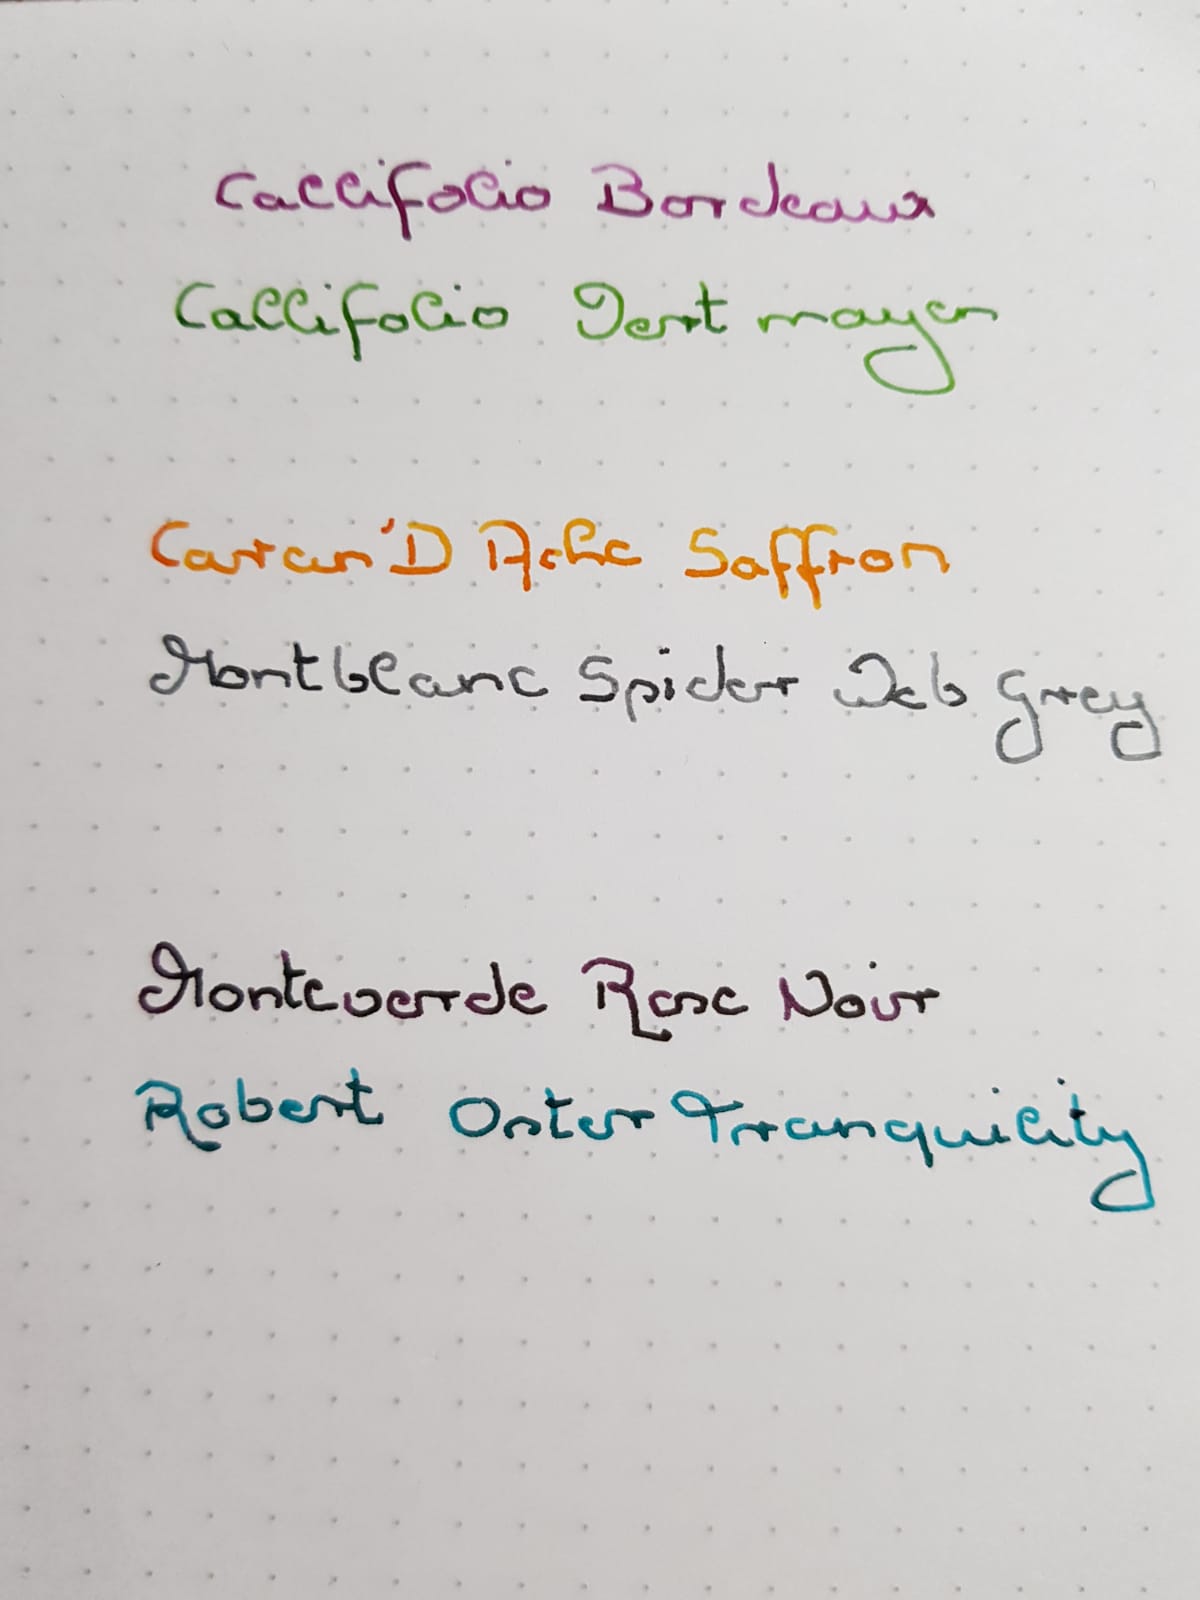 Callifolio Bordeaux
Callifolio Vert mayer
Caran'D Ache Saffron
Montblanc Spider Web Grey
Monteverde Rose Noir
Robert Oster Tranquility